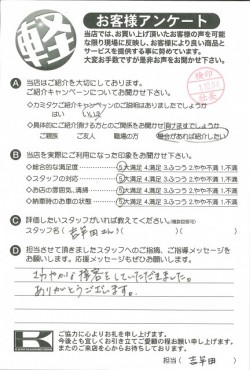 軽
お客様アンケート
当店では、お買い上げ頂いたお客様の声を可能な限り現場に反映し、お客様により良い商品とサービスを提供する事に努めています。
大変お手数ですが是非お声をお聞かせ下さい。
A 当店はご紹介を大切にしております。
ご紹介キャンペーンについてお聞かせ下さい。
◇カミタケご紹介キャンペーンのご説明はありましたでしょうか
はい いいえ
◇具体的にご紹介頂ける方とのご関係をお聞かせ頂けますでしょうか
ご親族 ご友人 職場の方 機会があれば紹介したい
B 当店を実際にご利用になった印象をお聞かせ下さい。
◇総合的な満足度 5大満足 4.満足 3.ふつう 2.やや不満 1.不満
◇スタッフの対応 5大満足 4.満足 3.ふつう 2.やや不満 1.不満
◇お店の雰囲気、清掃 5大満足 4.満足 3.ふつう 2.やや不満 1.不満
◇納車時のお車の状態 5大満足 4.満足 3.ふつう 2.やや不満 1.不満
C 評価したいスタッフがいれば教えてください。
スタッフ名( 吉年田さん )( )( )
D 担当させて頂きましたスタッフへのご指摘、ご指導メッセージをお願いします。応援メッセージもぜひお願いします。
さわやかな接客をしていただきました。
ありがとうございます。
K
ご協力に心よりお礼を申し上げます。
今後とも宜しくお引き立てご愛顧の程お願い申し上げます。
またのご来店を心からお待ちしております。
担当( 吉年田 )